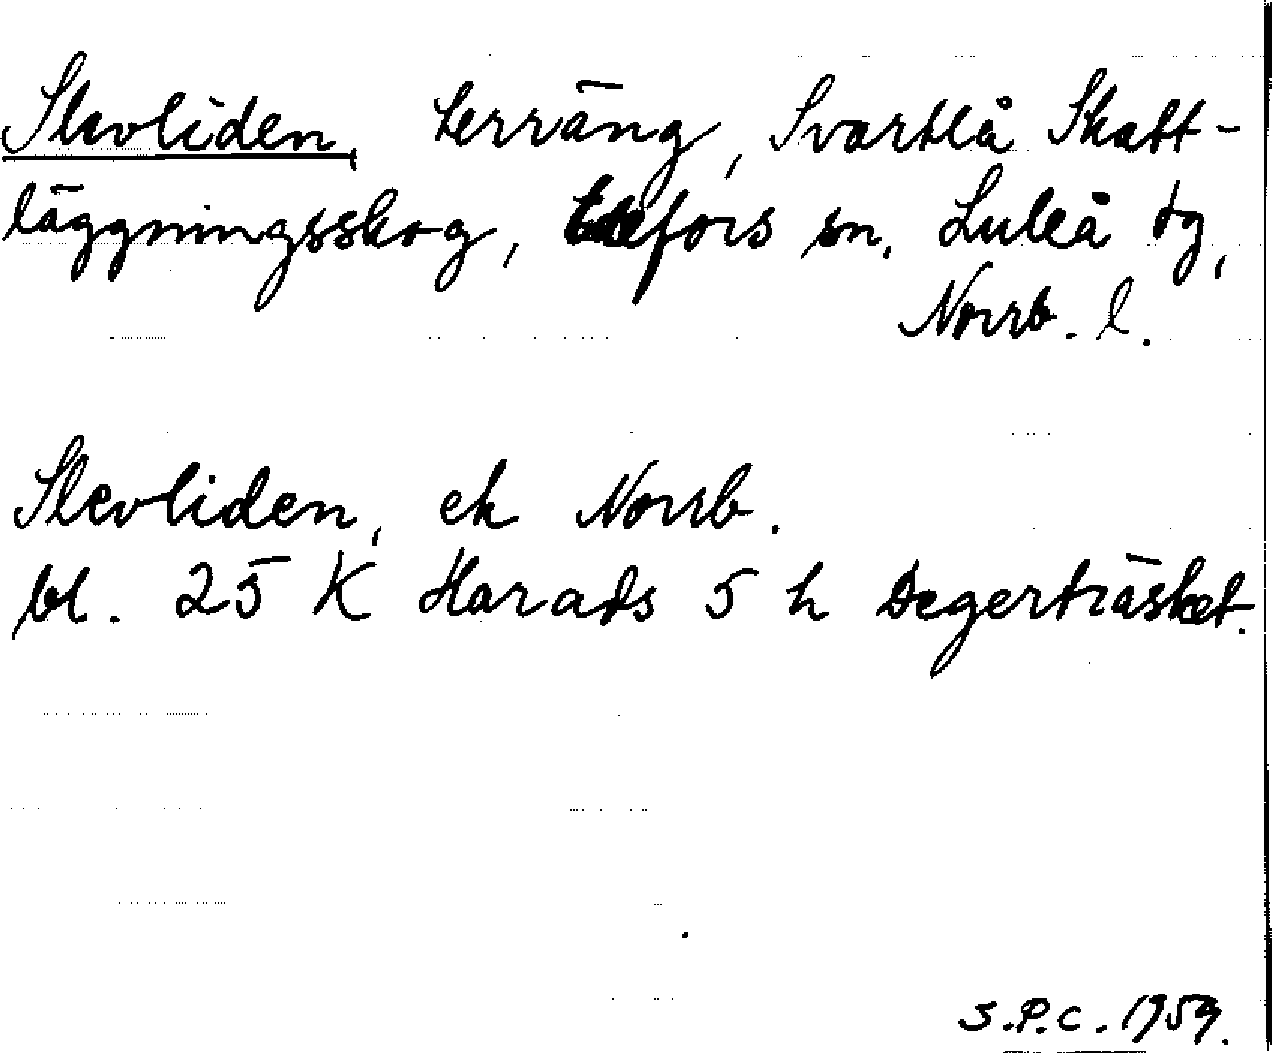 Slevliden, terräng, Svartlå Skatt-
läggningsskog, Edefors sn. Luleå tg,
Norrb. l.
Slevliden, ek Norrb.
bl. 25 K Harads 5 h Degerträsket.
S.P.C. 1959.